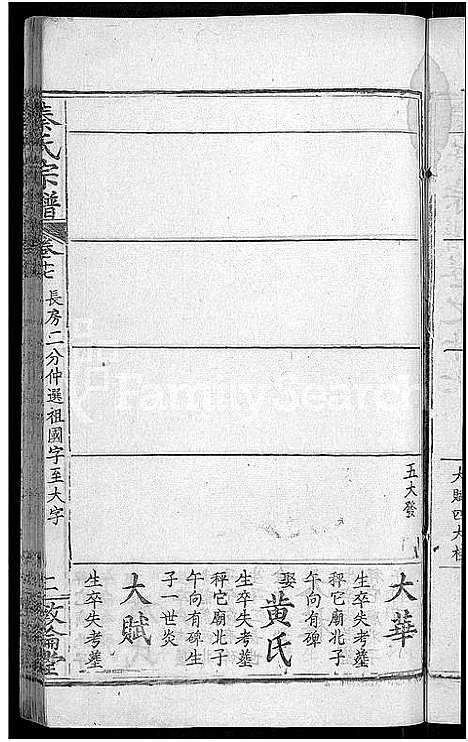 大賦四大桂
五大發
大華
生卒失考塟
秤它廟北子
午向有碑
娶黄氏
生卒失考塟
秤它廟北子
午向有碑生
子一世炎
大賦
生卒失考塟
秦氏宗譜
卷七
長房二分仲選祖國字至大字
二
敦倫堂
FamilySearch